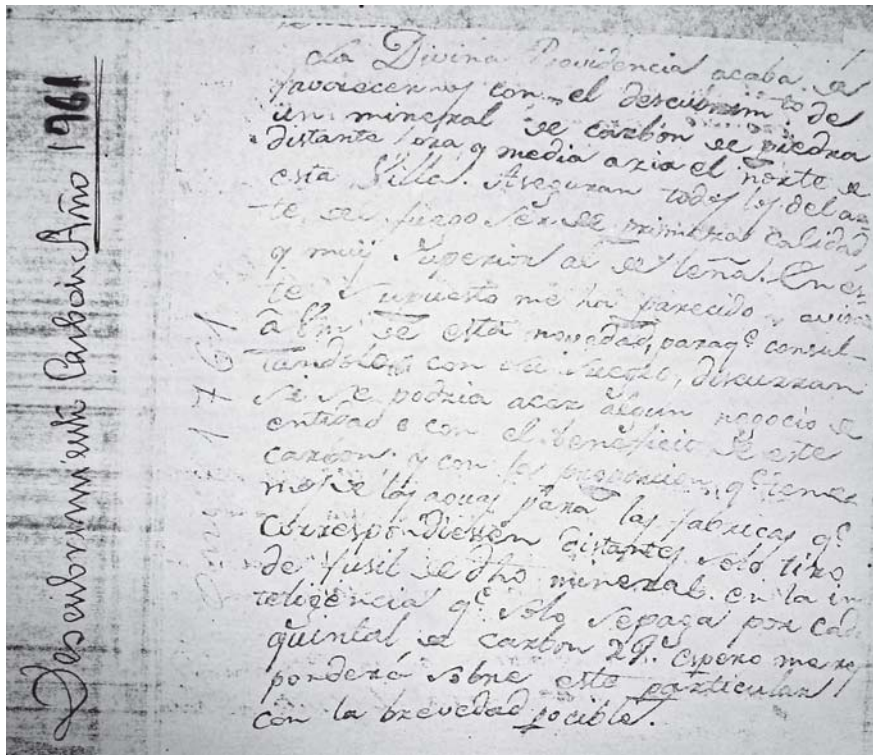 Descubrimiento Carbón Año 1961
Año 1761
La Divina Providencia acaba de
favorecernos con el descubrim.to de
un mineral de carbon de piedra
distante ora y media azia el norte de
esta Villa. Aseguran todos los del ar
te, del fuego ser de primera calidad
y muy superior al de leña. En es
te supuesto me ha parecido avisar
á Vm de esta novedad, paraq.e consul-
tandolo con su suegro, discurran
si se podria acer algun negocio de
entidad con el beneficio de este
carbon, y con las proporcion q.e tene
mos de las aguas para las fabricas q.e
correspondiesen distantes solo tiro
de fusil de dho mineral. en la in
teligencia q.e solo se paga por cada
quintal de carbon espero me res
ponderá sobre este particular
con la brevedad pocible.